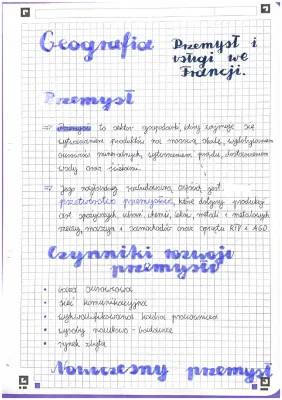 Geografia
Przemysł i
usługi we
Francji.
Przemysł
Przemysł to sektor gospodarki, który zajmuje się
wytwarzaniem produktów na masową skalę, wydobywaniem
surowców mineralnych, wytwarzaniem prądu, dostarczaniem
wody oraz ściekami.
Jego najbardziej rozbudowaną częścią jest
przetwórstwo przemysłowe, które dotyczy produkcji
art. spożywczych, ubrań, chemii, leków, metali i metalowych
rzeczy, maszyn i samochodów oraz sprzętu RTV i AGD.
Czynniki rozwoju
przemysłu
baza surowcowa
sieć komunikacyjna
wykwalifikowana kadra pracownicza
ośrodki naukowo-badawcze
rynek zbytu
Nowoczesny przemysł